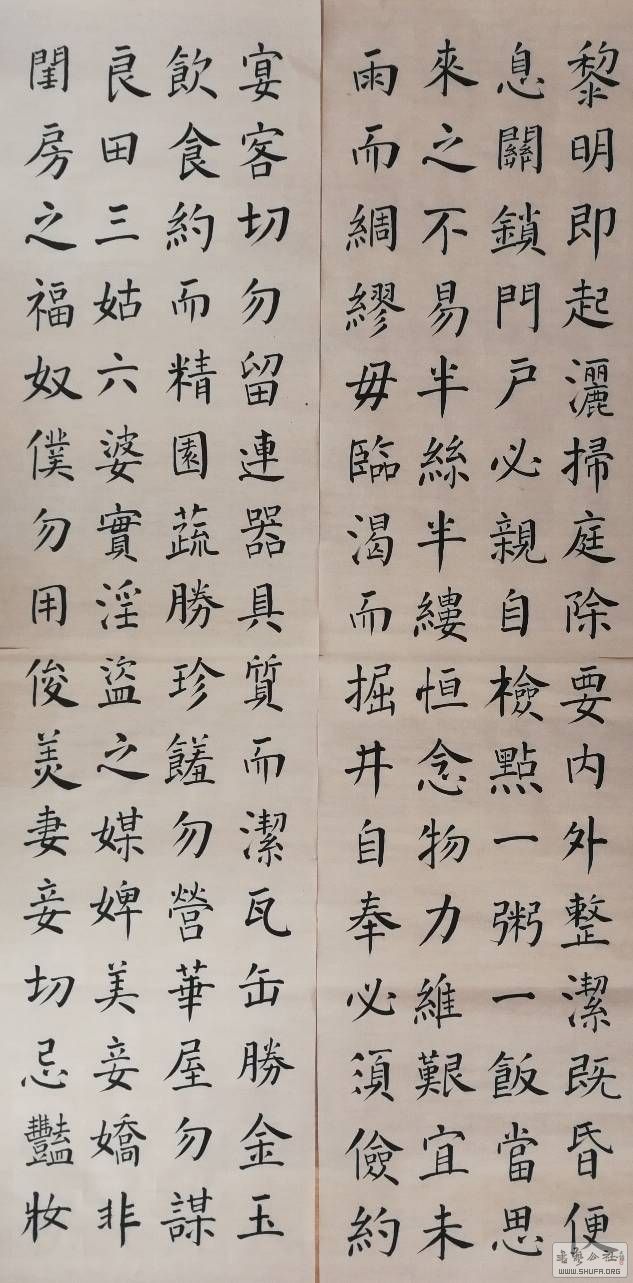 黎明即起灑掃庭除要内外整潔既昏便
息關鎖門户必親自檢點一粥一飯當思
來之不易半絲半縷恒念物力維艱宜未
雨而綢繆毋臨渴而掘井自奉必須儉約
宴客切勿留連器具質而潔瓦缶勝金玉
飲食約而精園蔬勝珍饈勿營華屋勿謀
良田三姑六婆實淫盜之媒婢美妾嬌非
閨房之福奴僕勿用俊美妻妾切忌豔妝
WWW.SHUFA.ORG